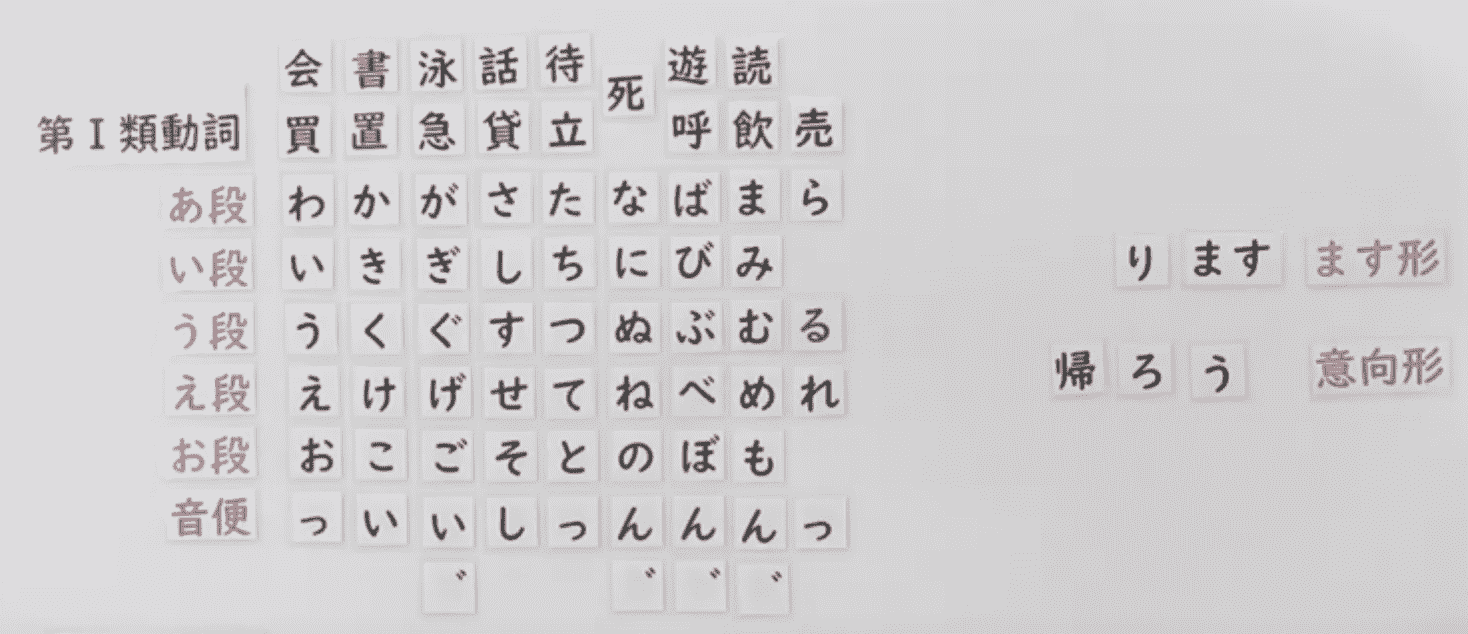 会 書 泳 話 待 死 遊 読
第Ⅰ類動詞 買 置 急 貸 立 呼 飲 売
あ段 わ か が さ た な ば ま ら
い段 い き ぎ し ち に び み り ます ます形
う段 う く ぐ す つ ぬ ぶ む る
え段 え け げ せ て ね べ め れ 帰 ろ う 意向形
お段 お こ ご そ と の ぼ も
音便 っ い い し っ ん ん ん っ
゛ ゛ ゛ ゛